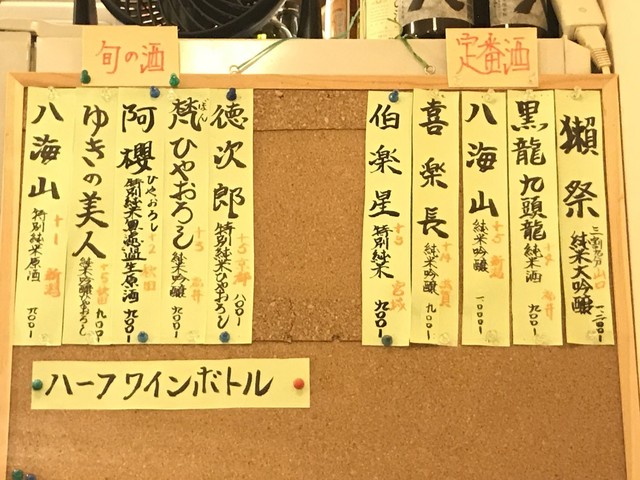 定番酒
獺祭 三割九分 純米大吟醸 山口 一、二〇〇
黒龍 九頭龍 純米酒 九〇〇
八海山 純米吟醸 +5 新潟 一〇〇〇
喜楽長 純米吟醸 +14 滋賀 九〇〇
伯楽星 特別純米 +3 宮城 九〇〇
旬の酒
徳次郎 特別純米ひやおろし 京都 八〇〇
梵 ぼん ひやおろし 純米吟醸 +3 福井 九〇〇
阿櫻 ひやおろし 特別純米 生原酒 秋田 九〇〇
ゆきの美人 純米吟醸ひやおろし 秋田 九〇〇
八海山 特別純米原酒 +1 新潟 九〇〇
ハーフワインボトル